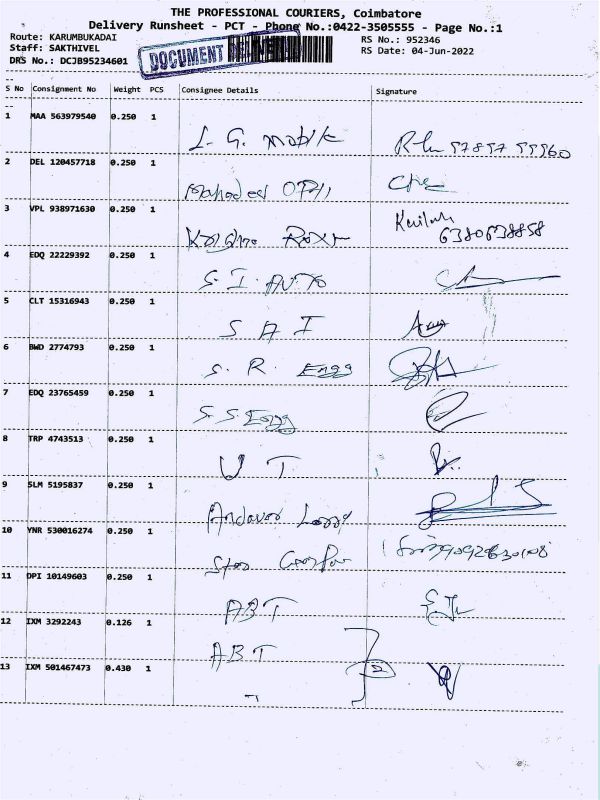 THE PROFESSIONAL COURIERS, Coimbatore
Delivery Runsheet - PCT - Phone No.:0422-3505555 - Page No.:1
Route: KARUMBUKADAI
RS No.: 952346
Staff: SAKTHIVEL
RS Date: 04-Jun-2022
DRS No.: DCJB95234601
DOCUMENT DELIVERED
S No Consignment No Weight PCS Consignee Details Signature
1 MAA 563979540 0.250 1
L. G. mobile
2 DEL 120457718 0.250 1
3 VPL 938971630 0.250 1
6380638858
4 EDQ 22229392 0.250 1
S. I. AUTO
5 CLT 15316943 0.250 1
S A I
6 BWD 2774793 0.250 1
S. R. Engg
7 EDQ 23765459 0.250 1
S. S. Engg
8 TRP 4743513 0.250 1
U T.
9 SLM 5195837 0.250 1
Andavar Lorry
10 YNR 530016274 0.250 1
Star
11 DPI 10149603 0.250 1
ABT
12 IXM 3292243 0.126 1
ABT
2
13 IXM 501467473 0.430 1